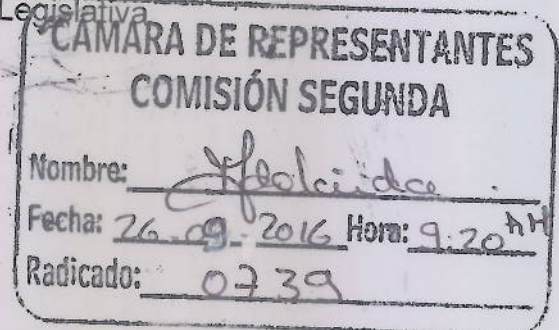 Legislativa
CAMARA DE REPRESENTANTES
COMISIÓN SEGUNDA
Nombre:
Fecha: 26-09-2016 Hora: 9:20 AM
Radicado: 0739